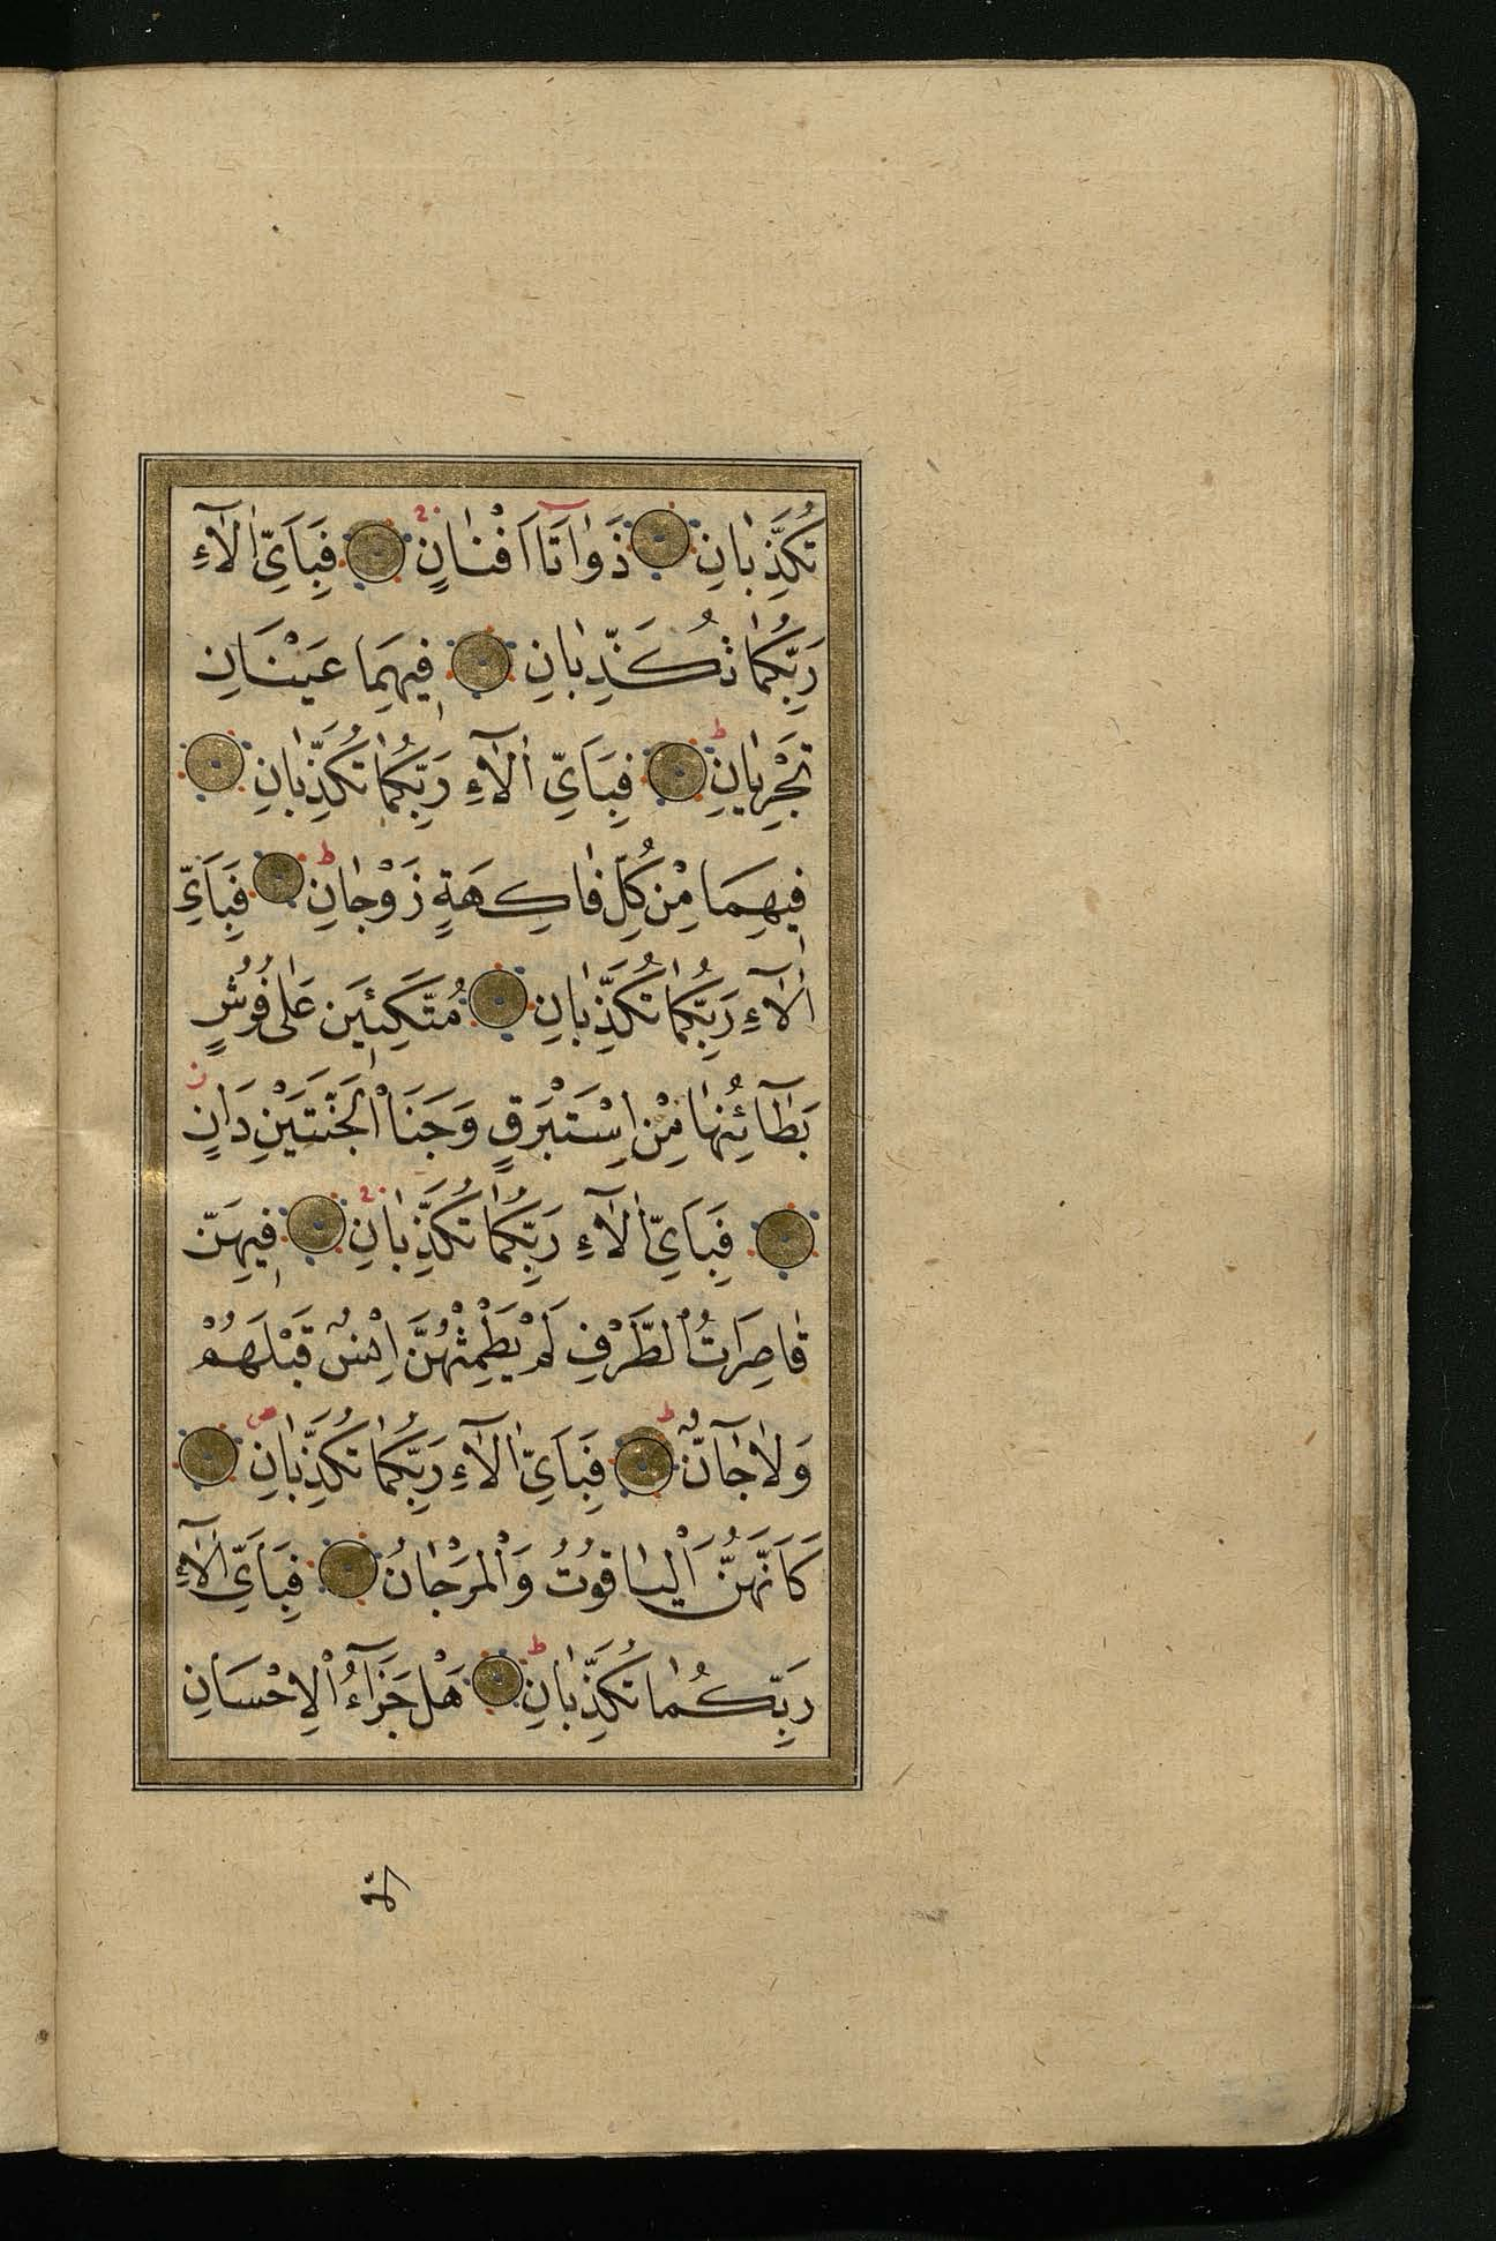 تُكَذِّبَانِ ذَوَاتَا اَفْنَانٍ فَبِاَيِّ اٰلَاۤءِ
رَبِّكُمَا تُكَذِّبَانِ فِيهِمَا عَيْنَانِ
تَجْرِيَانِ فَبِاَيِّ اٰلَاۤءِ رَبِّكُمَا تُكَذِّبَانِ
فِيهِمَا مِنْ كُلِّ فَاكِهَةٍ زَوْجَانِ فَبِاَيِّ
اٰلَاۤءِ رَبِّكُمَا تُكَذِّبَانِ مُتَّكِـِٔينَ عَلٰى فُرُشٍ
بَطَاۤئِنُهَا مِنْ اِسْتَبْرَقٍ وَجَنَا الْجَنَّتَيْنِ دَانٍ
فَبِاَيِّ اٰلَاۤءِ رَبِّكُمَا تُكَذِّبَانِ فِيهِنَّ
قَاصِرَاتُ الطَّرْفِ لَمْ يَطْمِثْهُنَّ اِنْسٌ قَبْلَهُمْ
وَلَا جَاۤنٌّ فَبِاَيِّ اٰلَاۤءِ رَبِّكُمَا تُكَذِّبَانِ
كَاَنَّهُنَّ الْيَاقُوتُ وَالْمَرْجَانُ فَبِاَيِّ اٰلَاۤءِ
رَبِّكُمَا تُكَذِّبَانِ هَلْ جَزَاۤءُ الْاِحْسَانِ